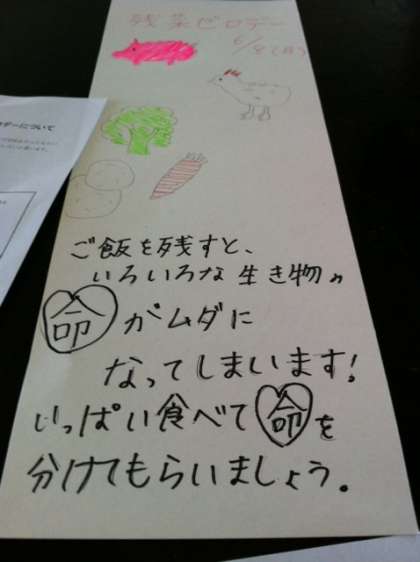 残菜ゼロデー
6/8
ご飯を残すと、
いろいろな生き物の
命がムダに
なってしまいます!
いっぱい食べて命を
分けてもらいましょう。
デーについて